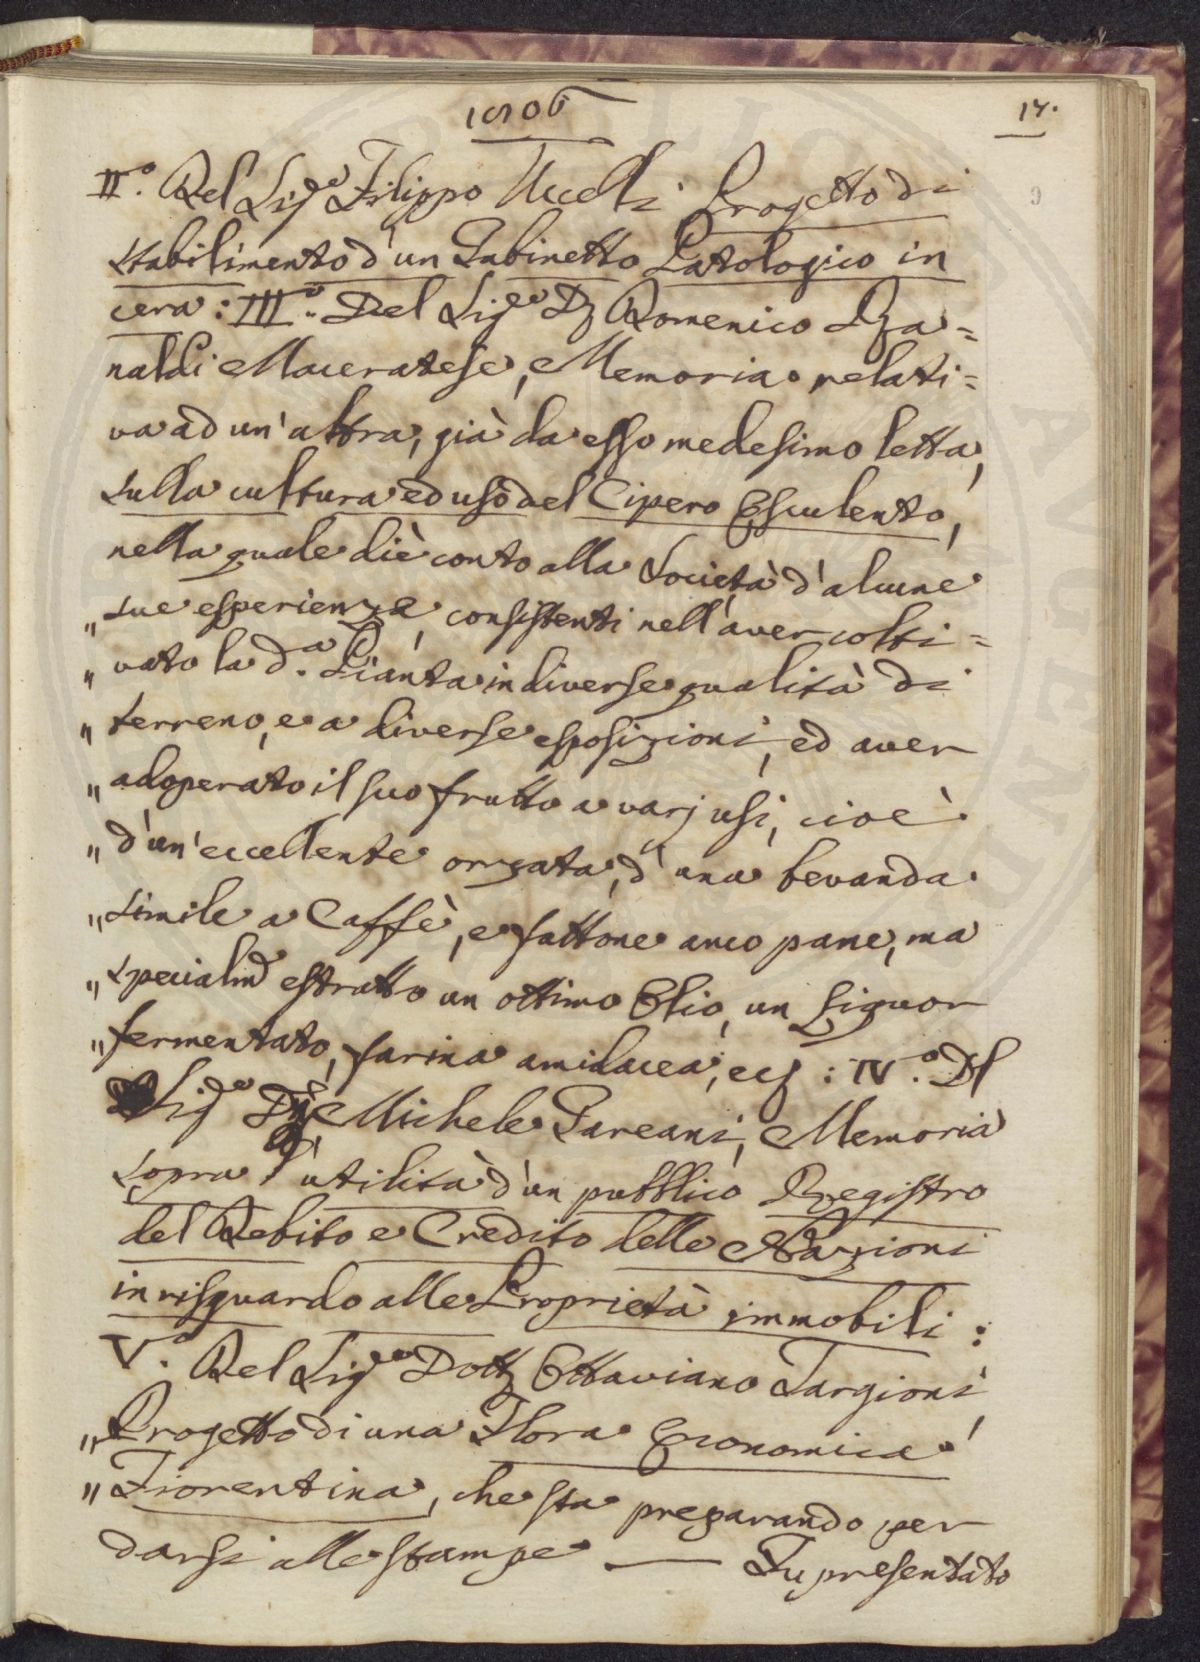 1806
17.
II.° Del Sig.e Filippo Uccelli Progetto di
stabilimento d'un Gabinetto Patologico in
cera: III.° Del Sig.e D. Domenico Ri=
naldi Maceratese, Memoria relati=
va ad un'altra, già da esso medesimo letta,
sulla cultura ed uso del Cipero Esculento,
nella quale diè conto alla Società d'alcune
„ sue esperienze, consistenti nell'aver colti=
„ vato la d.a Pianta in diverse qualità di
„ terreno, e a diverse esposizioni, ed aver
„ adoperato il suo frutto a varj usi, cioè
„ d'un'eccellente orzata, d'una bevanda
„ simile a Caffè, e fattone anco pane, ma
„ specialm. estratto un ottimo Olio, un Liquor
„ fermentato, farina amidacea, ec: IV.° Del
Sig.e Michele Pareani, Memoria
sopra l'utilità d'un pubblico Registro
del Debito e Credito delle Nazioni
in risguardo alle Proprietà immobili:
V.° Del Sig.e Dott. Ottaviano Targioni,
„ Progetto di una Flora Economica
„ Fiorentina, che sta preparando per
darsi alle stampe — Fu presentato